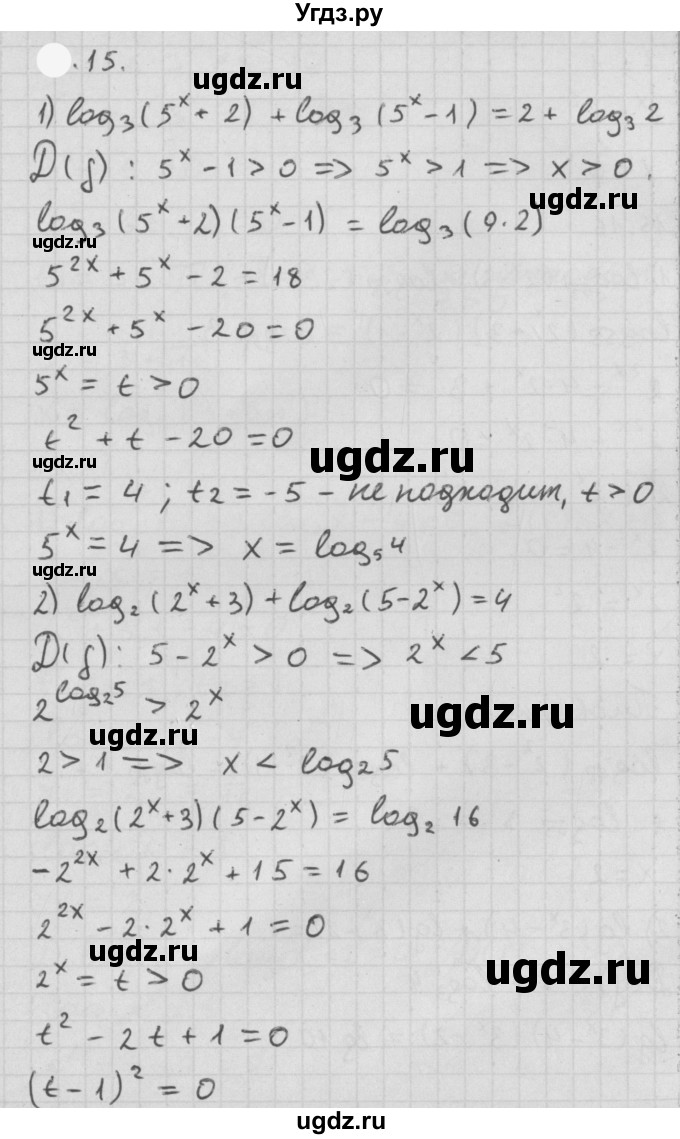 Угдз.ру
.15.
ugdz.ru
1) log₃(5ˣ + 2) + log₃(5ˣ - 1) = 2 + log₃2
D(f) : 5ˣ - 1 > 0 => 5ˣ > 1 => x > 0.
log₃(5ˣ + 2)(5ˣ - 1) = log₃(9·2)
ugdz.ru
5²ˣ + 5ˣ - 2 = 18
5²ˣ + 5ˣ - 20 = 0
ugdz.ru
5ˣ = t > 0
t² + t - 20 = 0
ugdz.ru
t₁ = 4 ; t₂ = -5 - не подходит, t > 0
5ˣ = 4 => x = log₅4
ugdz.ru
2) log₂(2ˣ + 3) + log₂(5 - 2ˣ) = 4
D(f) : 5 - 2ˣ > 0 => 2ˣ < 5
2^(log₂5) > 2ˣ
ugdz.ru
ugdz.ru
2 > 1 => x < log₂5
log₂(2ˣ + 3)(5 - 2ˣ) = log₂ 16
-2²ˣ + 2·2ˣ + 15 = 16
2²ˣ - 2·2ˣ + 1 = 0
ugdz.ru
2ˣ = t > 0
ugdz.ru
t² - 2t + 1 = 0
(t - 1)² = 0
ugdz.ru